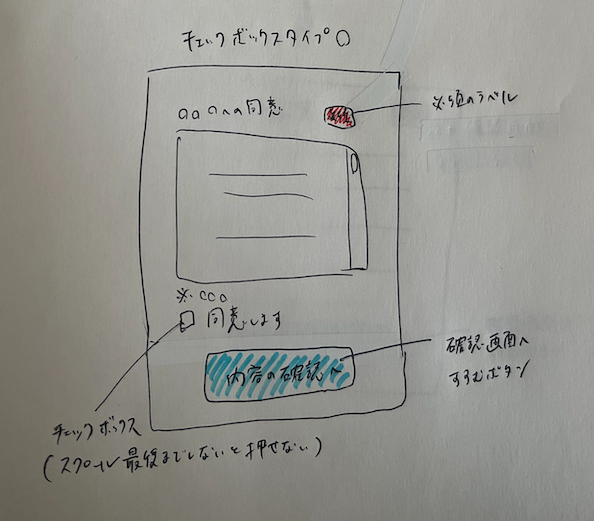 チェックボックスタイプ〇
〇〇〇への同意
必須
必須のラベル
※〇〇〇
同意します
内容の確認へ
確認画面へ
すすむボタン
チェックボックス
(スクロール最後までしないと押せない)